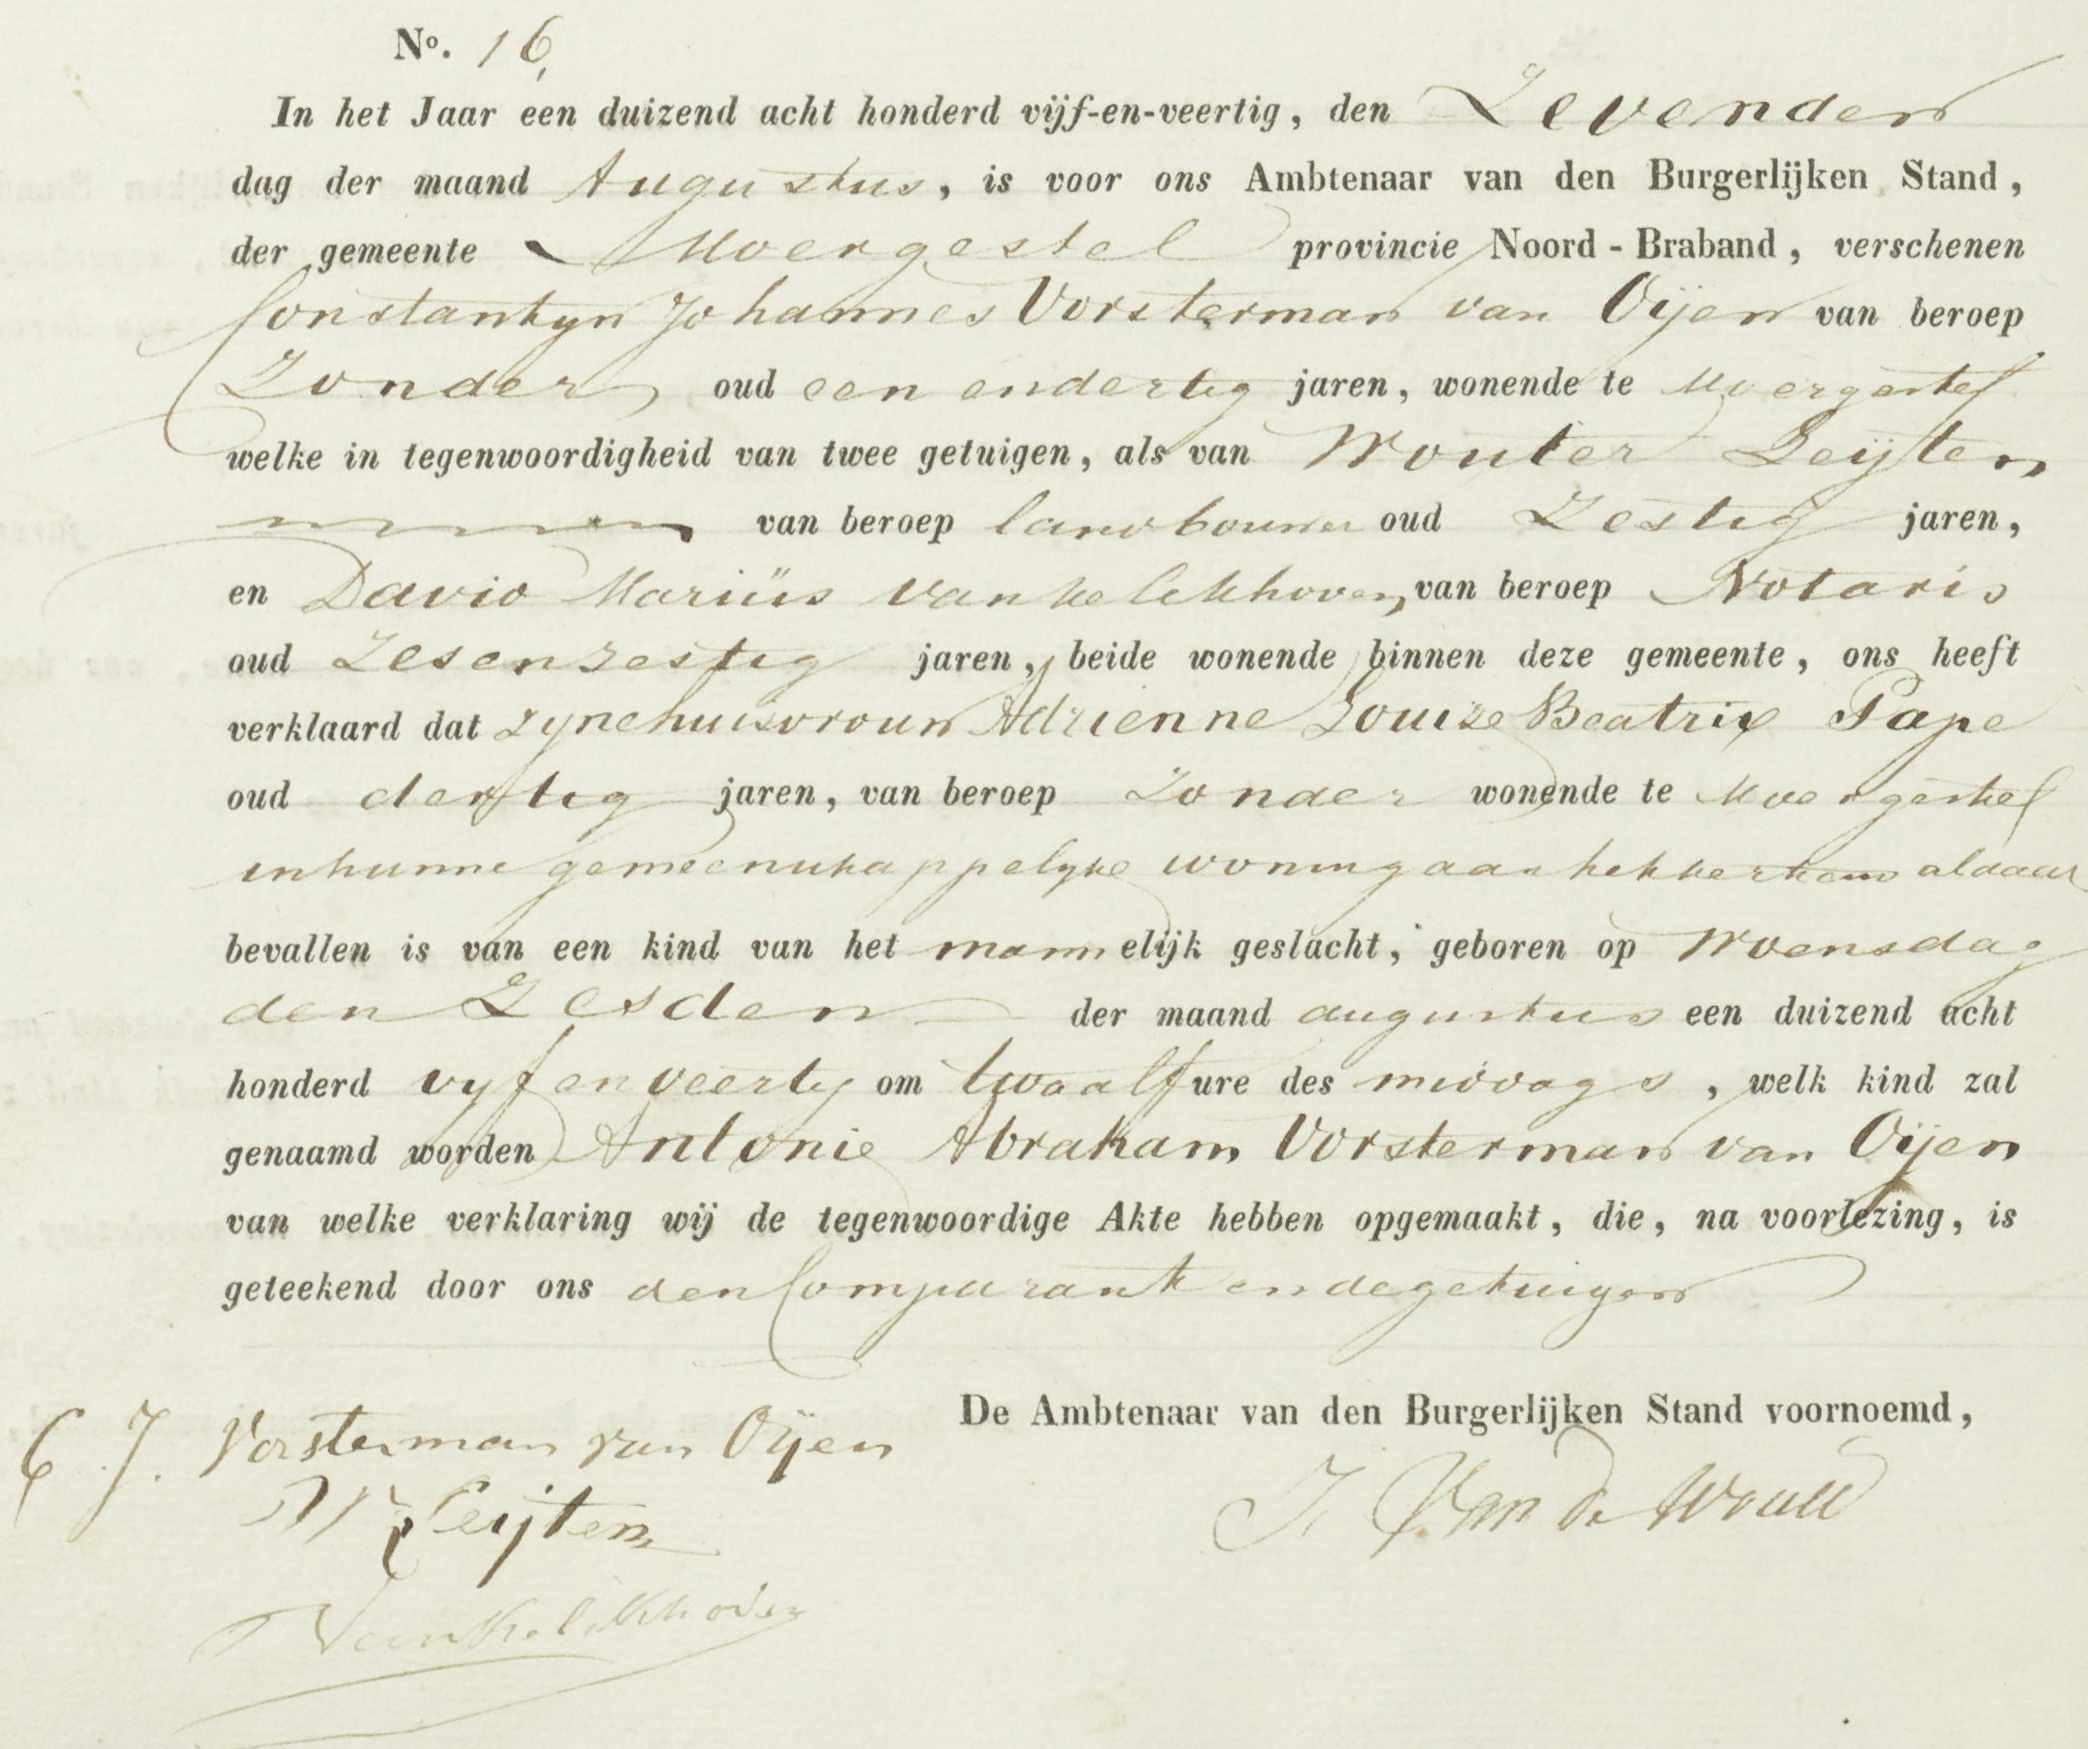 No. 16,
In het Jaar een duizend acht honderd vijf-en-veertig, den Zevenden
dag der maand Augustus, is voor ons Ambtenaar van den Burgerlijken Stand,
der gemeente Moergestel provincie Noord-Braband, verschenen
Constantyn Johannes Vorsterman van Oijen van beroep
Zonder oud een endertig jaren, wonende te Moergestel
welke in tegenwoordigheid van twee getuigen, als van Wouter Leijten
van beroep landbouwer oud Zestig jaren,
en David Mariüs van kelekhoven, van beroep Notaris
oud Zesenzestig jaren, beide wonende binnen deze gemeente, ons heeft
verklaard dat zynehuisvrouw Adrienne Louize Beatrix Pape
oud dertig jaren, van beroep Zonder wonende te Moergestel
inhunne gemeenschappelyke woning aan aldaar
bevallen is van een kind van het mannelijk geslacht, geboren op Woensdag
den Zesden der maand augustus een duizend acht
honderd vyf en veertig om twaalf ure des middags, welk kind zal
genaamd worden Antonie Abraham Vorsterman van Oijen
van welke verklaring wij de tegenwoordige Akte hebben opgemaakt, die, na voorlezing, is
geteekend door ons den Comparant en degetuigen
De Ambtenaar van den Burgerlijken Stand voornoemd,
C. J. Vorsterman van Oijen
W Leijten
J. Van de Wouw
Van Kelekhoven